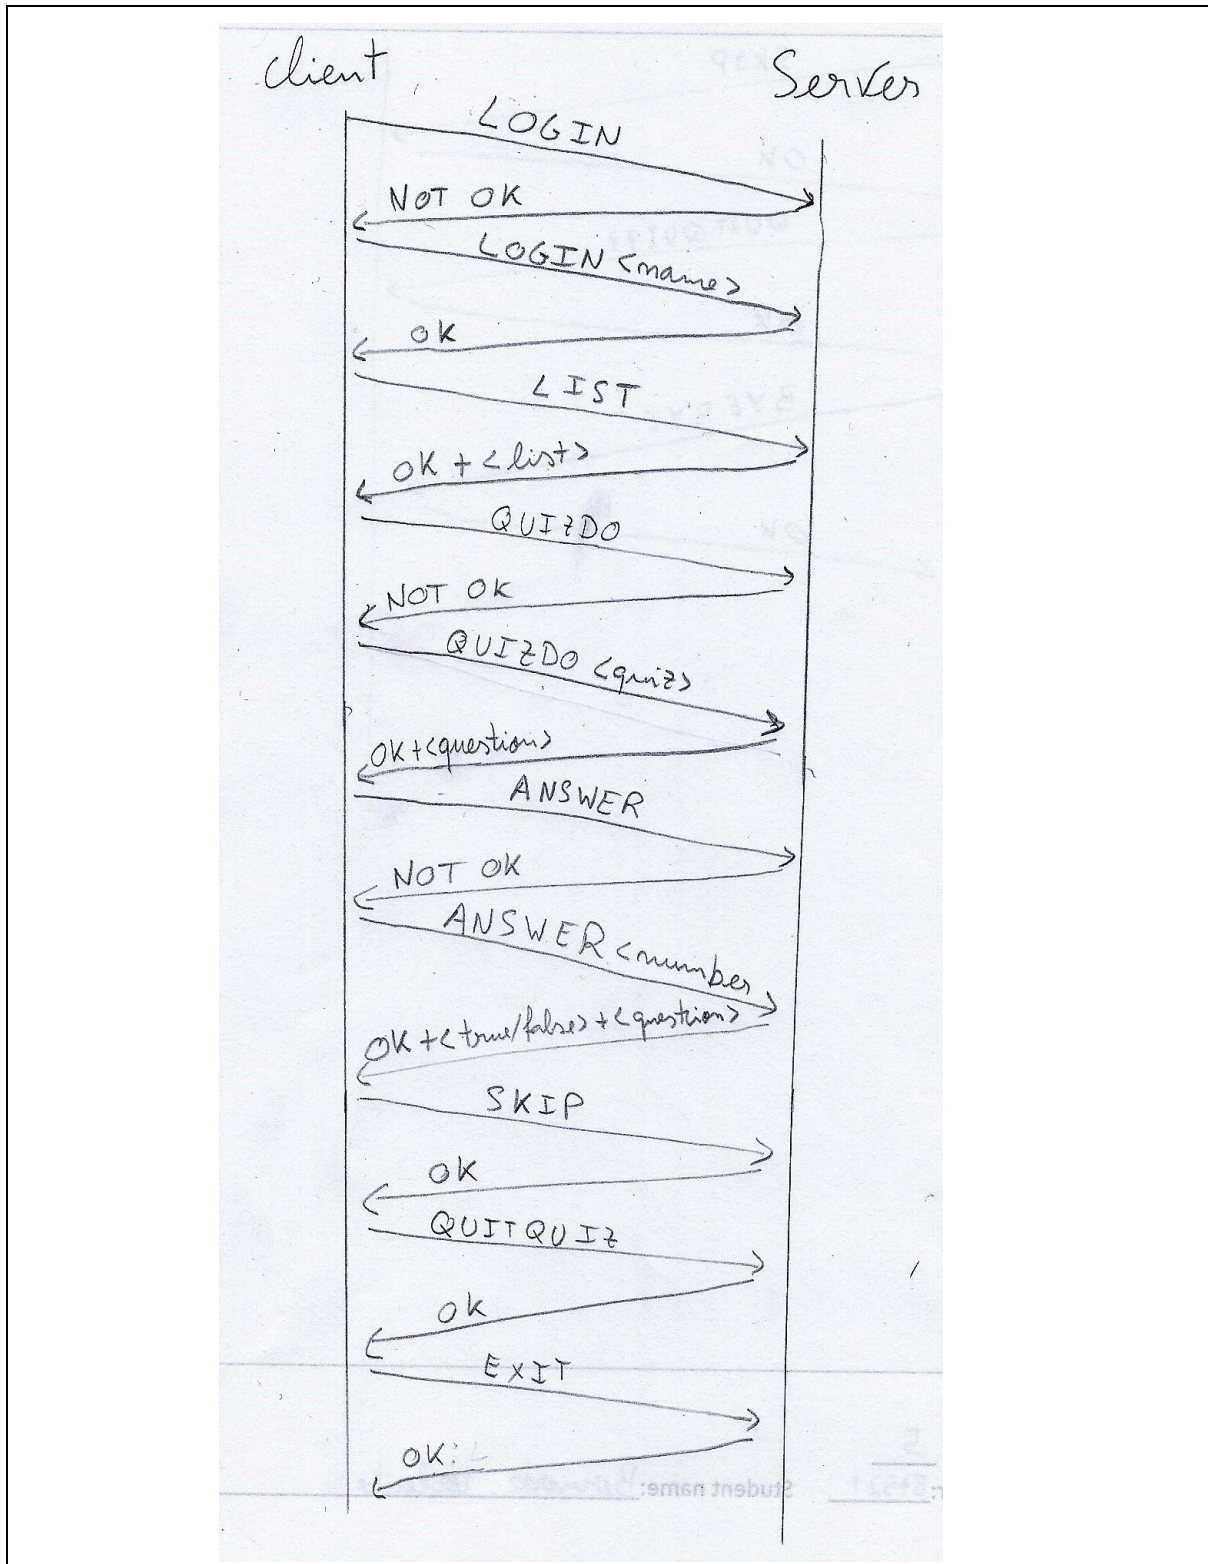 Client
Server
LOGIN
NOT OK
LOGIN <name>
OK
LIST
OK + <list>
QUIZDO
NOT OK
QUIZDO <quiz>
OK+<question>
ANSWER
NOT OK
ANSWER <number
OK+<true/false>+<question>
SKIP
OK
QUITQUIZ
OK
EXIT
OK:
Student name: